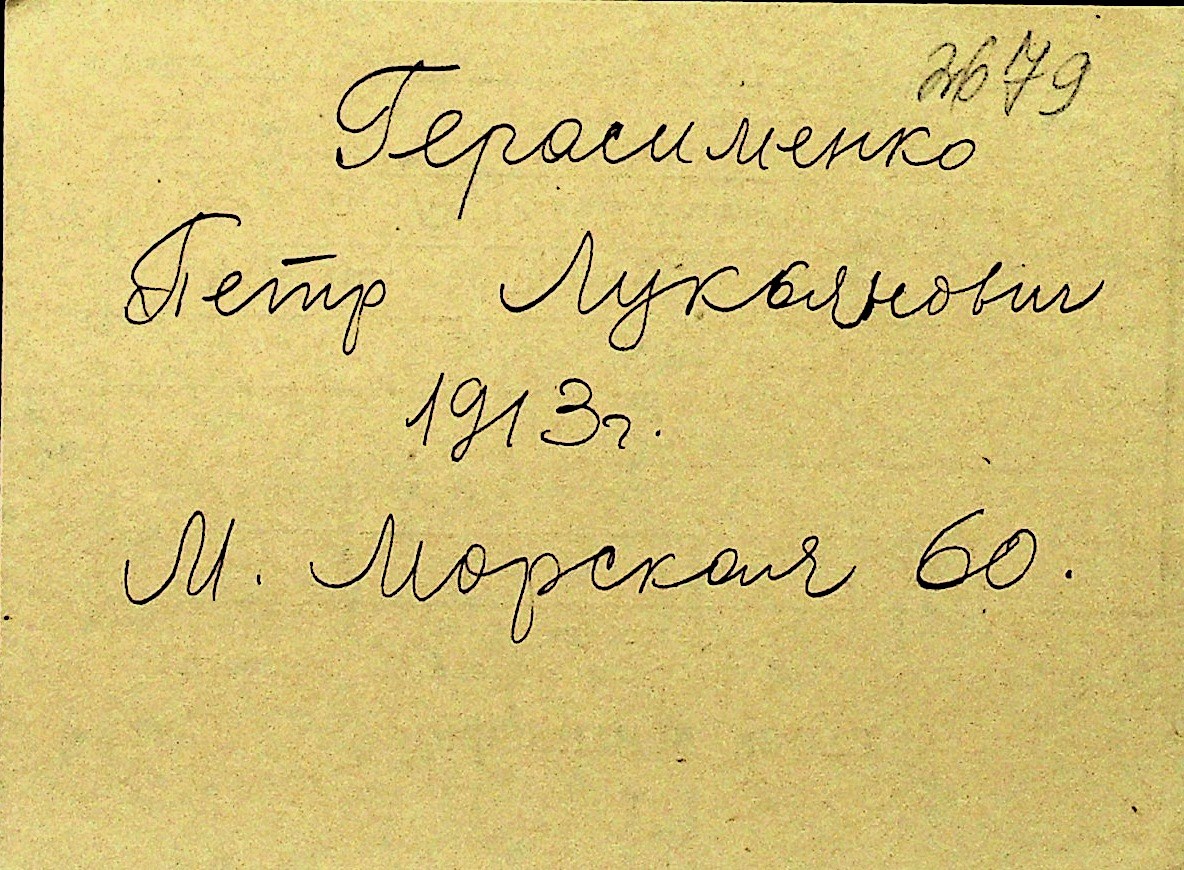 2679
Герасименко
Петр Лукьянович
1913г.
М. Морская 60.